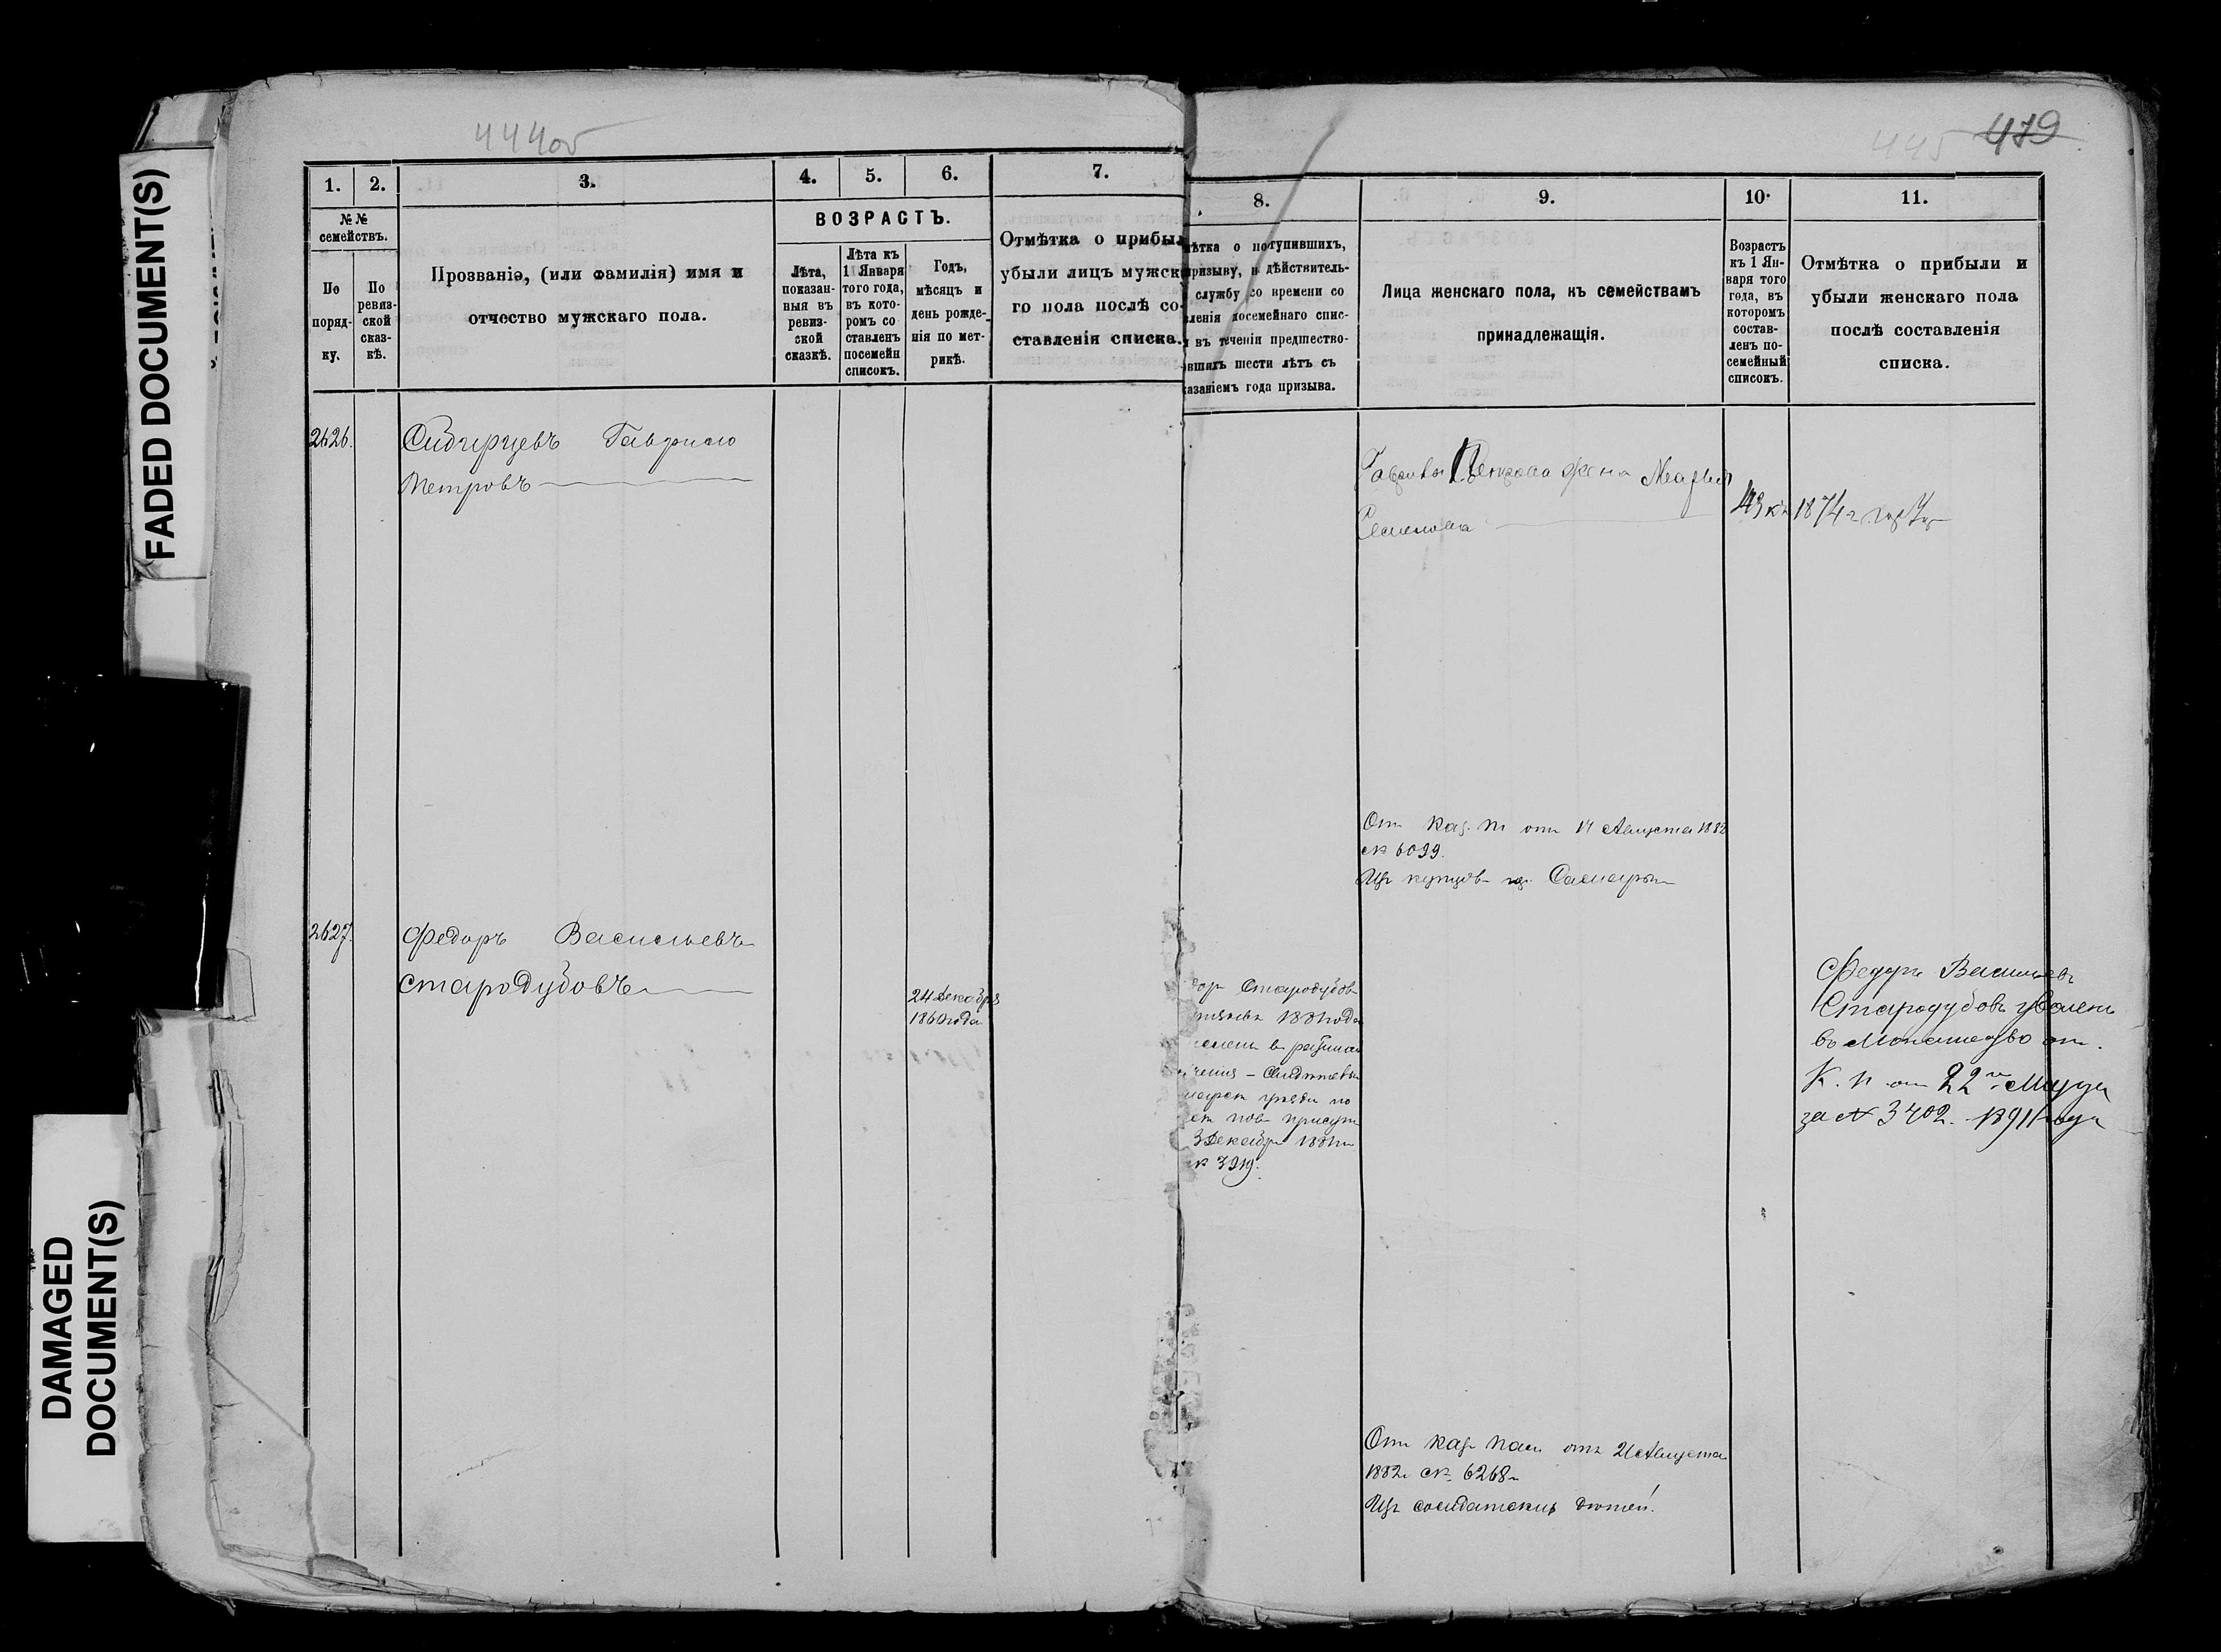 FADED DOCUMENT(S)
DAMAGED
DOCUMENT(S)
444об
1. 2. 3. 4. 5. 6. 7.
№№
семействъ.
По
поряд-
ку.
По
ревиз-
ской
сказ-
кѣ.
Прозваніе, (или фамилія) имя и
отчество мужскаго пола.
ВОЗРАСТЪ.
Лѣта,
показан-
ныя въ
ревиз-
ской
сказкѣ.
Лѣта къ
1 Января
того года,
въ кото-
ромъ со
ставленъ
посемейн
списокъ.
Годъ,
мѣсяцъ и
день рожде-
нія по мет-
рикѣ.
Отмѣтка о прибыл
убыли лицъ мужск
го пола послѣ со-
ставленія списка.
2626.
Гаврило
Петровъ
2627.
Федоръ Васильевъ
Стародубовъ
24 Декабря
1860 года
445 479
8. 9. 10. 11.
ѣтка о поступившихъ,
призыву, въ дѣйствитель-
службу со времени со
вленія посемейнаго спис-
въ теченіи предшество-
вшихъ шести лѣтъ съ
казаніемъ года призыва.
Лица женскаго пола, къ семействамъ
принадлежащія.
Возрастъ
къ 1 Ян-
варя того
года, въ
которомъ
состав-
ленъ по-
семейный
списокъ.
Отмѣтка о прибыли и
убыли женскаго пола
послѣ составленія
списка.
Гаврилы Петрова жена Марья
Семенова
43 къ 1874 г
От Каз. П от 14 Августа 1882
№ 6099.
Изъ купцовъ гор. Самары
дор Стародубов
1881 года
3 Декабря 1881
№ 3919.
Федоръ Васильевъ
Стародубовъ уволенъ
въ Монашество от.
К. П. от 22
за № 3702. 1891 года
От Каз Пал отъ 21 Августа
1882 г № 6268
Изъ солдатскихъ дѣтей.